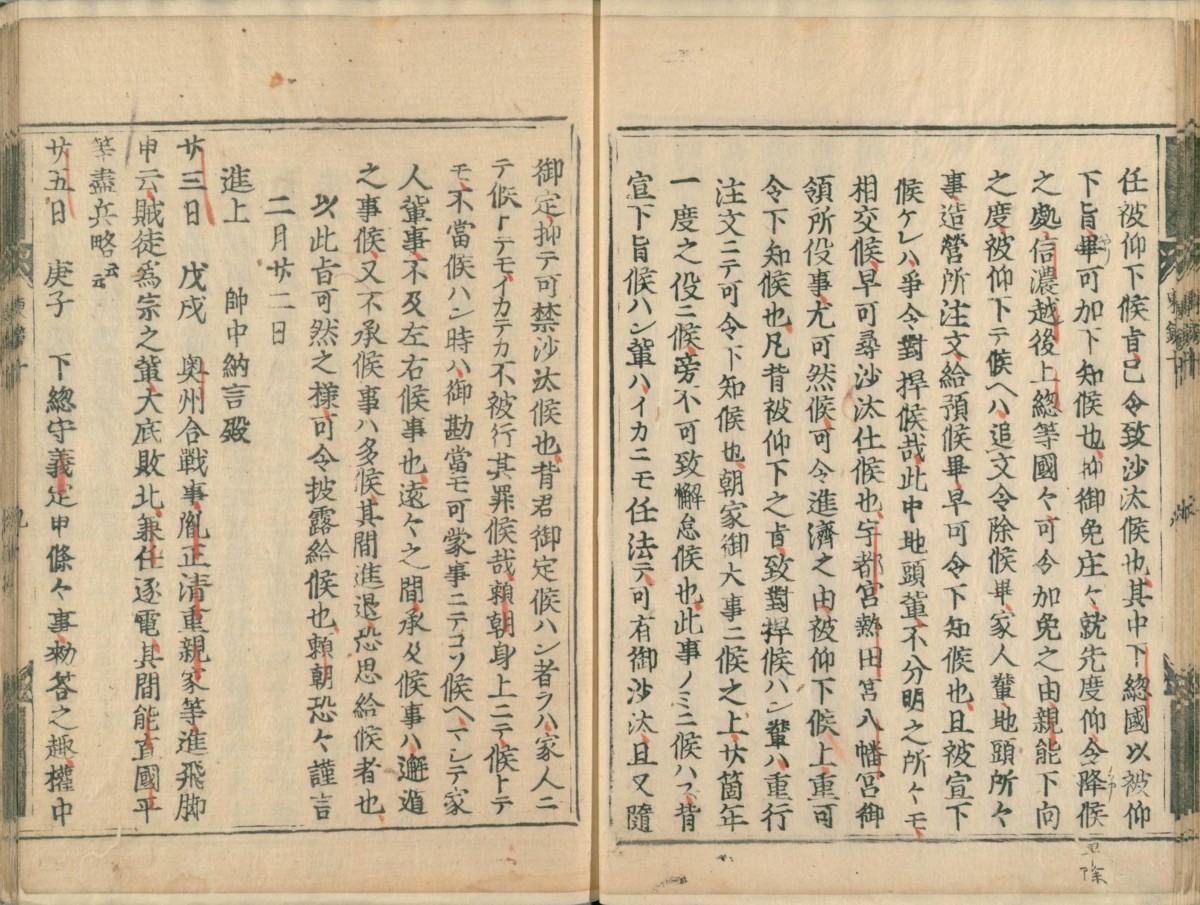 任被仰下候旨已令致沙汰候也其中下總國以被仰
下旨畢可加下知候也抑御免庄々就先度仰令降候
之處信濃越後上總等國々可令加免之由親能下向
之度被仰下テ候ヘハ追文令除候畢家人輩地頭所々
事造營所注文給預候畢早可令下知候也且被宣下
候ケレハ爭令對捍候哉此中地頭輩不分明之所々モ
相交候早可尋沙汰仕候也宇都宮熱田宮八幡宮御
領所役事尤可然候可令進濟之由被仰下候上重可
令下知候也凡背被仰下之旨致對捍候ハン輩ハ重行
注文ニテ可令下知候也朝家御大事ニ候之上廿箇年
一度之役ニ候旁不可致懈怠候也此事ノミニ候ハス背
宣下旨候ハン輩ハイカニモ任法テ可有御沙汰且又隨
御定抑テ可禁沙汰候也背君御定候ハン者ヲハ家人ニ
テ候トテモイカテカ不被行其罪候哉賴朝身上ニテ候トテ
モ不當候ハン時ハ御勘當モ可蒙事ニテコソ候ヘマシテ家
人輩事不及左右候事也遠々之間承及候事ハ邂逅
之事候又不承候事ハ多候其間進退恐思給候者也
以此旨可然之樣可令披露給候也賴朝恐々謹言
二月廿二日
進上　帥中納言殿
廿三日　戊戌　奥州合戰事胤正清重親家等進飛脚
申云賊徒爲宗之輩大底敗北兼任逐電其間能直國平
等盡兵略云云
廿五日　庚子　下總守義定申條々事勅答之趣權中
重除